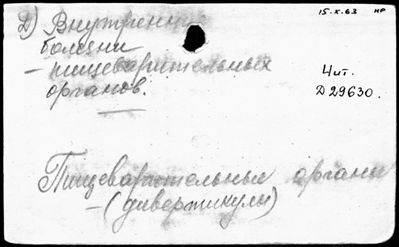 15.X.63 нр
2) Внутренн
болезни
– пищеварительных
органов.
Чит.
Д 29630.
Пищеварительные органы
– (дивертикулы)